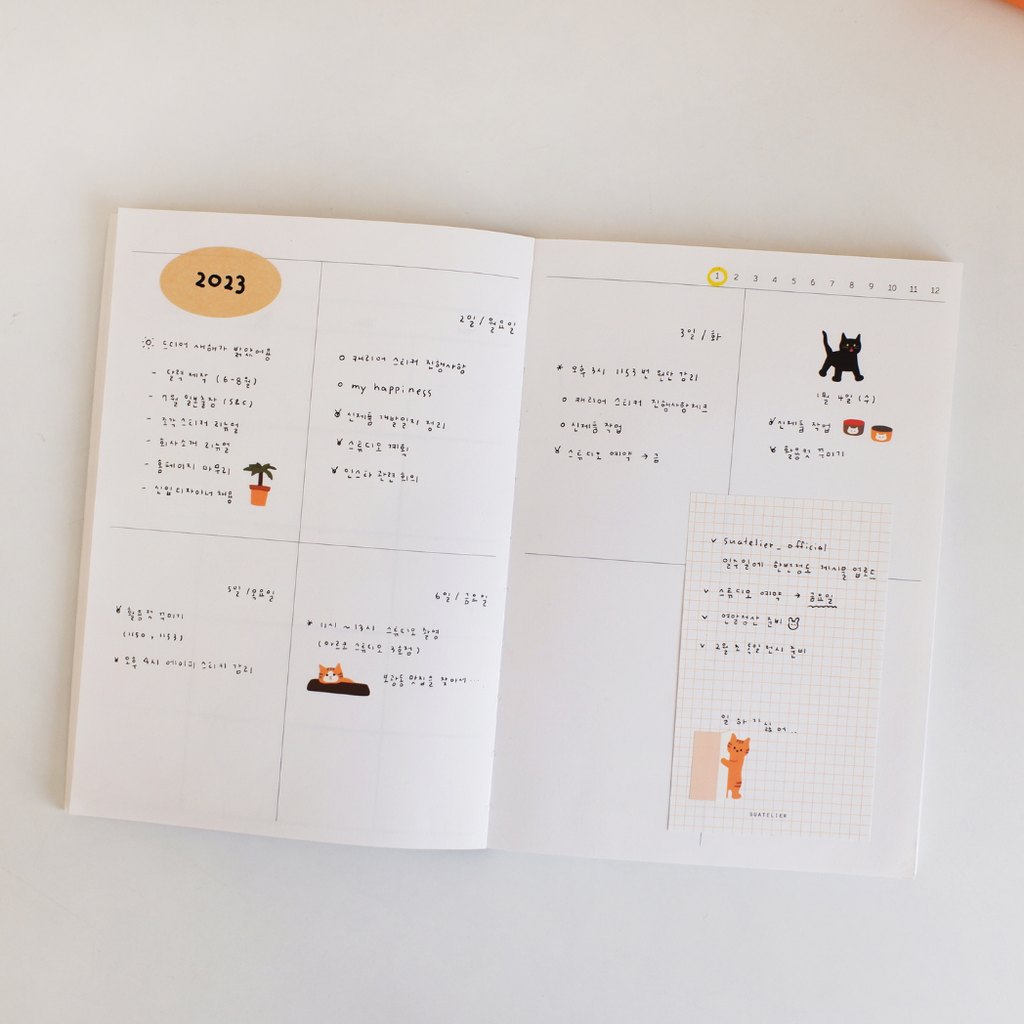 2023
드디어 새해가 밝았어용
- 달력제작 (6-8월)
- 7월 일본출장 (S&C)
- 조각스티커 리뉴얼
- 회사소개 리뉴얼
- 홈페이지 마무리
- 신입디자이너 채용
2일 / 월요일
o 캐리어 스티커 진행사항
o my happiness
신제품 개발일지 정리
스튜디오 계획
인스타 관련 회의
5일 / 목요일
활용컷 꾸미기
(1150, 1153)
오후 4시 에이피 스티커 감리
6일 / 금요일
* 11시 ~ 13시 스튜디오 촬영
(아르코 스튜디오)
보광동 맛집을 찾아서...
1 2 3 4 5 6 7 8 9 10 11 12
3일 / 화
* 오후 3시 1153번 원단 감리
o 캐리어 스티커 진행사항체크
o 신제품 작업
스튜디오 예약 → 금
1월 4일 (수)
신제품 작업
활용컷 꾸미기
v suatelier_official
일주일에 한번정도 게시물 업로드
v 스튜디오 예약 → 금요일
v 연말정산 준비
v 2월초 독일전시 준비
일 하기싫어...
SUATELIER